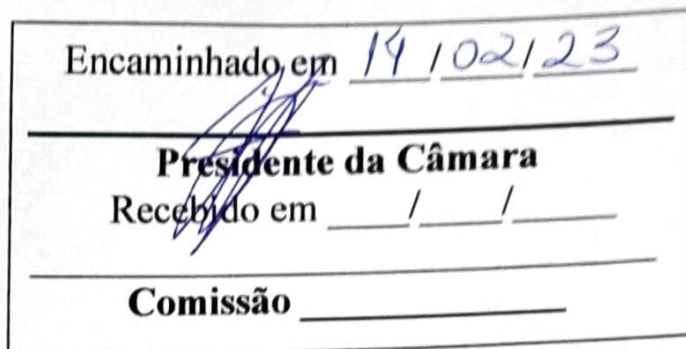 Encaminhado em 14/02/23
Presidente da Câmara
Recebido em ____/____/____
Comissão ____